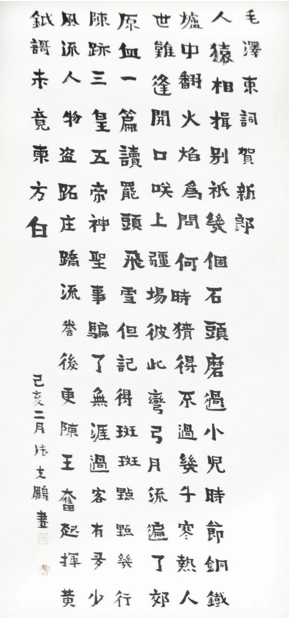 毛澤東詞賀新郎
人猿相揖別祇幾個石頭磨過小兒時節銅鐵
爐中翻火焰爲問何時猜得不過幾千寒熱人
世難逢開口咲上疆場彼此彎弓月流遍了郊
原血一篇讀罷頭飛雪但記得斑斑點點幾行
陳跡三皇五帝神聖事騙了無涯過客有多少
風流人物盜跖庄蹻流譽後更陳王奮起揮黃
鉞謌未竟東方白
己亥二月鵬書